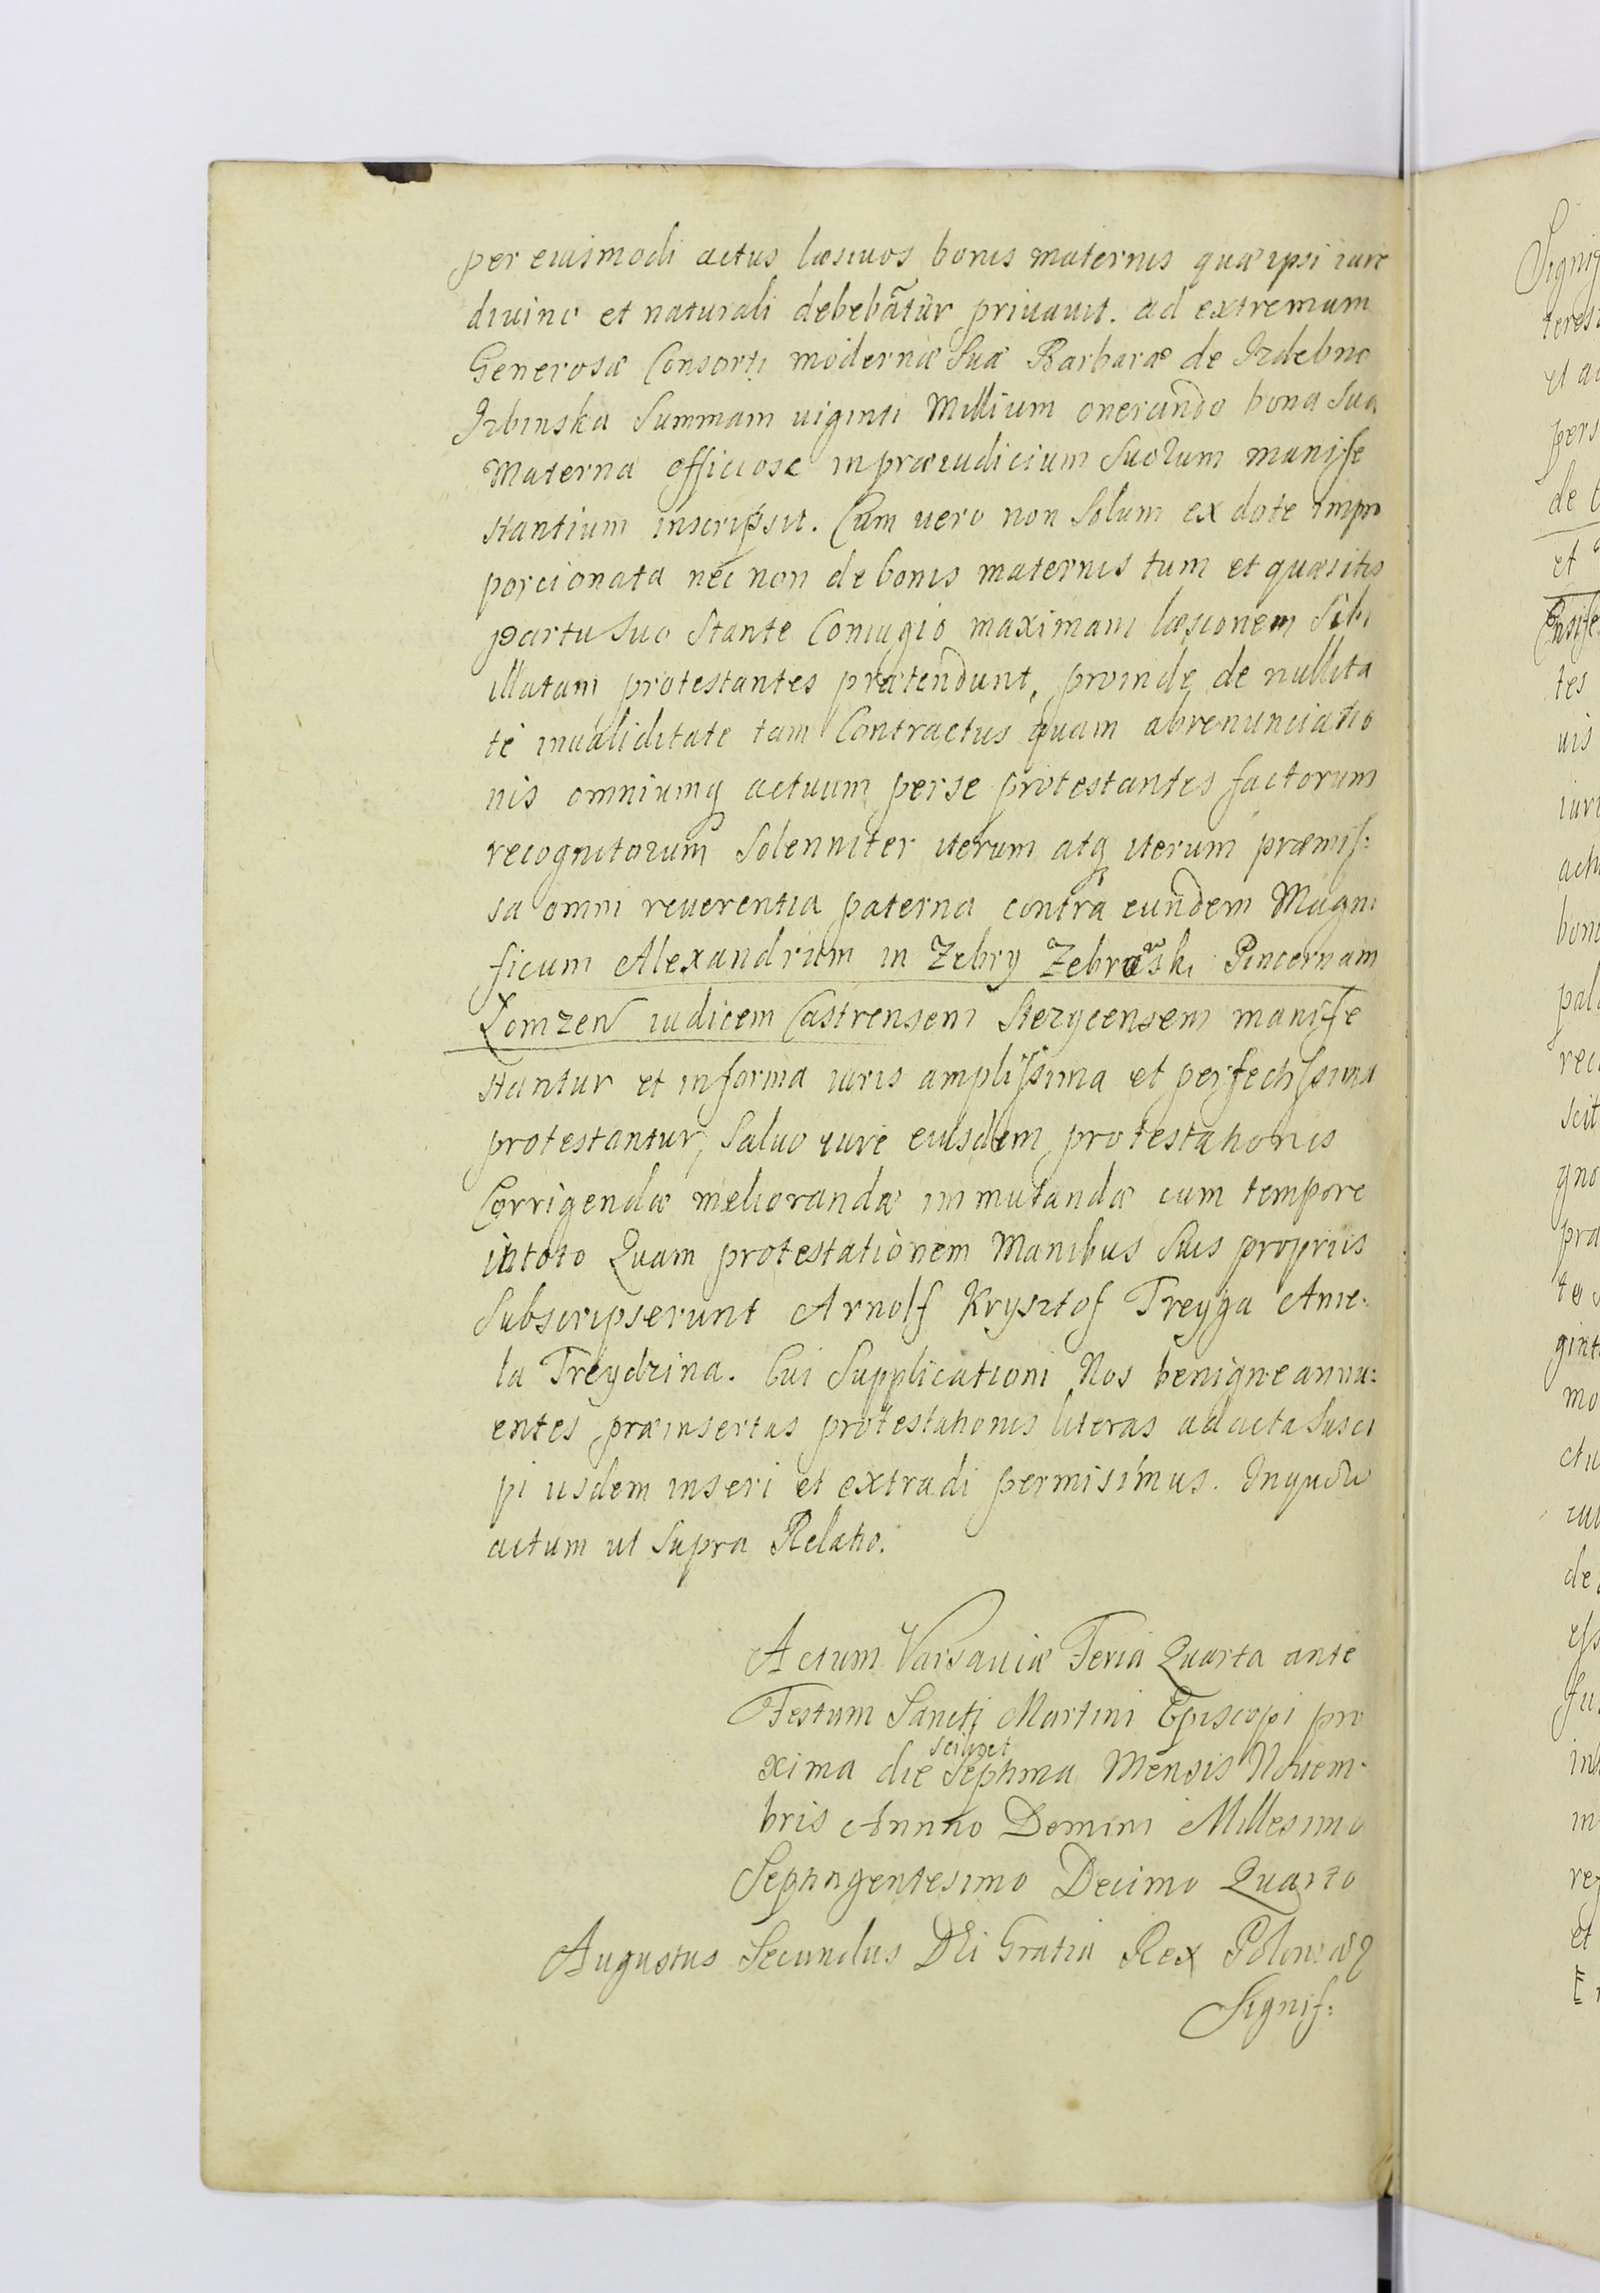 per eiusmodi actus læsiuos bonis maternis quæ ipsi iure
diuino et naturali debebãtur priuauit. ad extremum
Generosæ Consorti modernæ Suæ Barbaræ de Izdebno
Izbinska Summam uiginti Millium onerando bona Sua
Materna officiose in præiudicium Suorum manife
stantium inscripsit. Cum uero non Solum ex dote impro
porcionata nec non de bonis maternis tum et quæsitis
partu Suo Stante Coniugio maximam læsionem Sibi
illatam protestantes prætendunt, proinde de nullita
te inualiditate tam Contractus quam abrenunciatio
nis omniumq actuum per se protestantes factorum
recognitorum Solenniter iterum atq iterum præmis:
sa omni reuerentia paterna contra eundem Magni
ficum Alexandrum in Zebry Zebrowski Pincernam
Łomzen iudicem Castrensem Stezycensem manife
stantur et in forma iuris amplissima et perfectissima
protestantur, Saluo iure eiusdem protestationis
Corrigendæ meliorandæ immutandæ cum tempore
in toto Quam protestationem Manibus Suis propriis
Subscripserunt Arnolf Krysztof Treyga Anie-
la Treydzina. Cui Supplicationi Nos benigne annu:
entes præinsertas protestationis literas ad acta Susci
pi iisdem inseri et extradi permisimus.
actum ut Supra Relatio.
Actum Varsauiæ Feria Quarta ante
Festum Sancti Martini Episcopi pro
xima die scilicet Septima Mensis Nouem-
bris Annno Domini Millesimo
Septingentesimo Decimo Quarto
Augustus Secundus DEi Gratia Rex Poloniæ
Signif:
Signif
teres
et
pers
de
et
tes
uis
bon
rec
scit
gno
præ
gint
mo
de
et